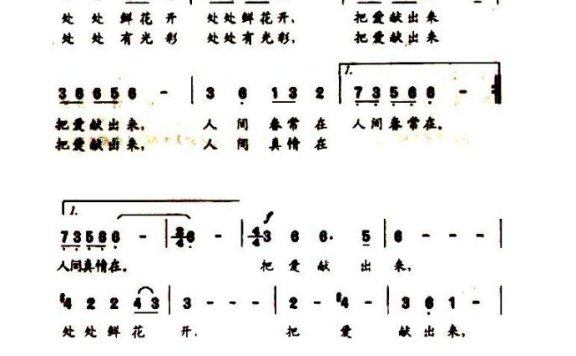 处处鲜花开 处处鲜花开, 把爱献出来
处处有光彩 处处有光彩, 把爱献出来
3 6 6 5 6 - | 3 6 1 3 2 | 1. 7 3 5 6 6 - :|
把爱献出来, 人间春常在 人间春常在.
把爱献出来, 人间真情在
1.
7 3 5 6 6 - | 3/4 6 - | 4/4 f 3 6 6. 5 | 6 - - - |
人间真情在. 把爱献出来,
6 4 2 2 4 3 | 3 - - - | 2 - 6 4 - | 3 6 1 -
处处鲜花开. 把爱献出来,